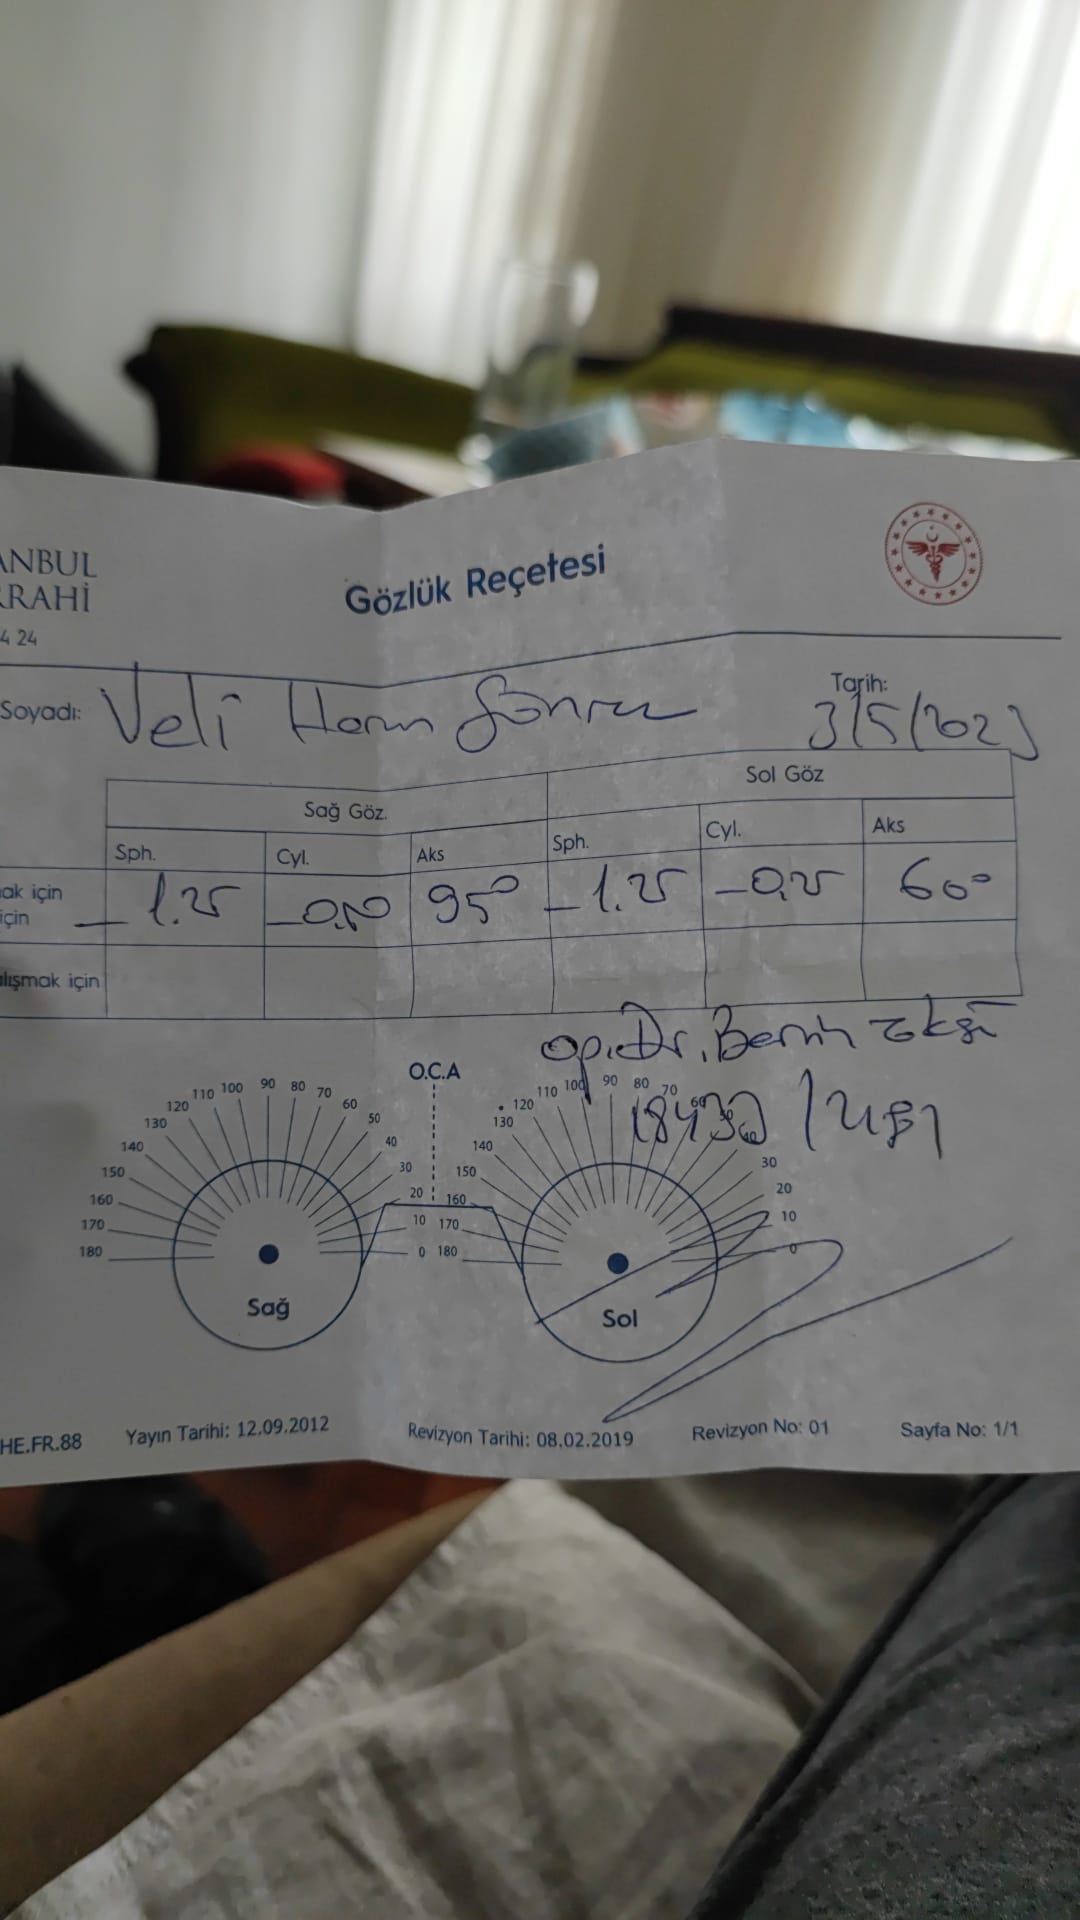 ANBUL
RRAHİ
4 24
Gözlük Reçetesi
Soyadı: Veli
Tarih:
3/5/2023
Sağ Göz. Sol Göz
Sph. Cyl. Aks Sph. Cyl. Aks
ak için
için
- 1.25 -0,50 95° - 1.25 -0,25 60°
lışmak için
Op. Dr.
O.C.A
180 170 160 150 140 130 120 110 100 90 80 70 60 50 40 30 20 10 0
180 170 160 150 140 130 120 110 100 90 80 70 60 30 20 10 0
Sağ
Sol
HE.FR.88 Yayın Tarihi: 12.09.2012 Revizyon Tarihi: 08.02.2019 Revizyon No: 01 Sayfa No: 1/1